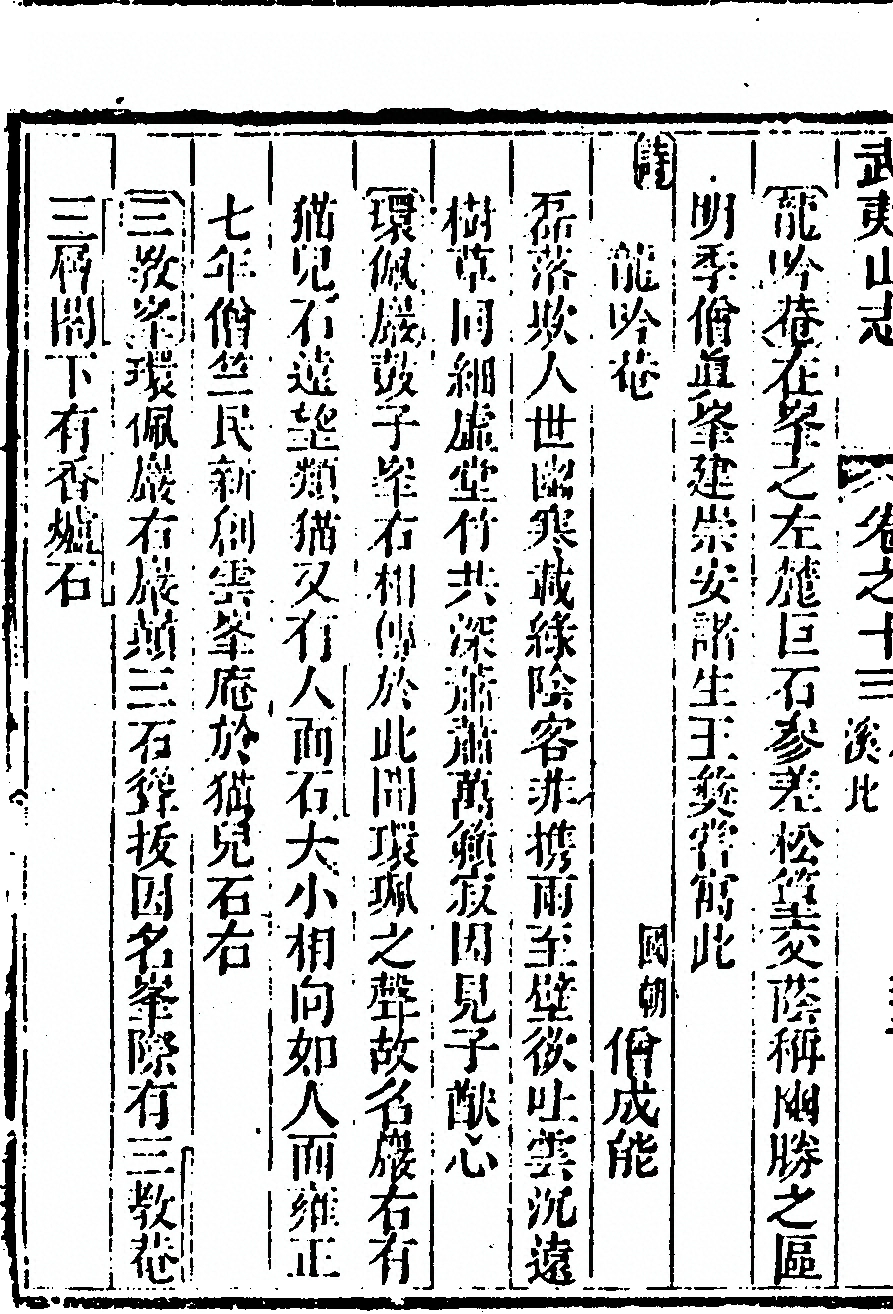 武夷山志 卷之十三 溪北
龍吟菴在峯之左麓巨石參差松篁交蔭稱幽勝之區
明季僧眞峯建崇安諸生王䕫嘗寓此
詩 龍吟菴 國朝 僧成能
磊落欺人世幽寒藏綠陰客非携雨至壁欲吐雲沉遠
樹草同細虛堂竹共深蕭蕭萬籟寂因見子猷心
環佩巖鼓子峯右相傳於此聞環珮之聲故名巖右有
猫兒石遠望類猫又有人面石大小相向如人面雍正
七年僧竺民新創雲峯庵於猫兒石右
三教峯環佩巖右巖顛三石聳拔因名峯際有三教菴
三層閣下有香爐石